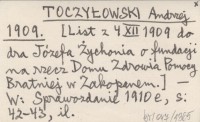 TOCZYŁOWSKI Andrzej
1909. [List z 4 XII 1909 do
dra Józefa Żychonia o fundacji
na rzecz Domu Zdrowia Pomocy
Bratniej w Zakopanem.]
W: Sprawozdanie 1910 e, s:
42-43, il.